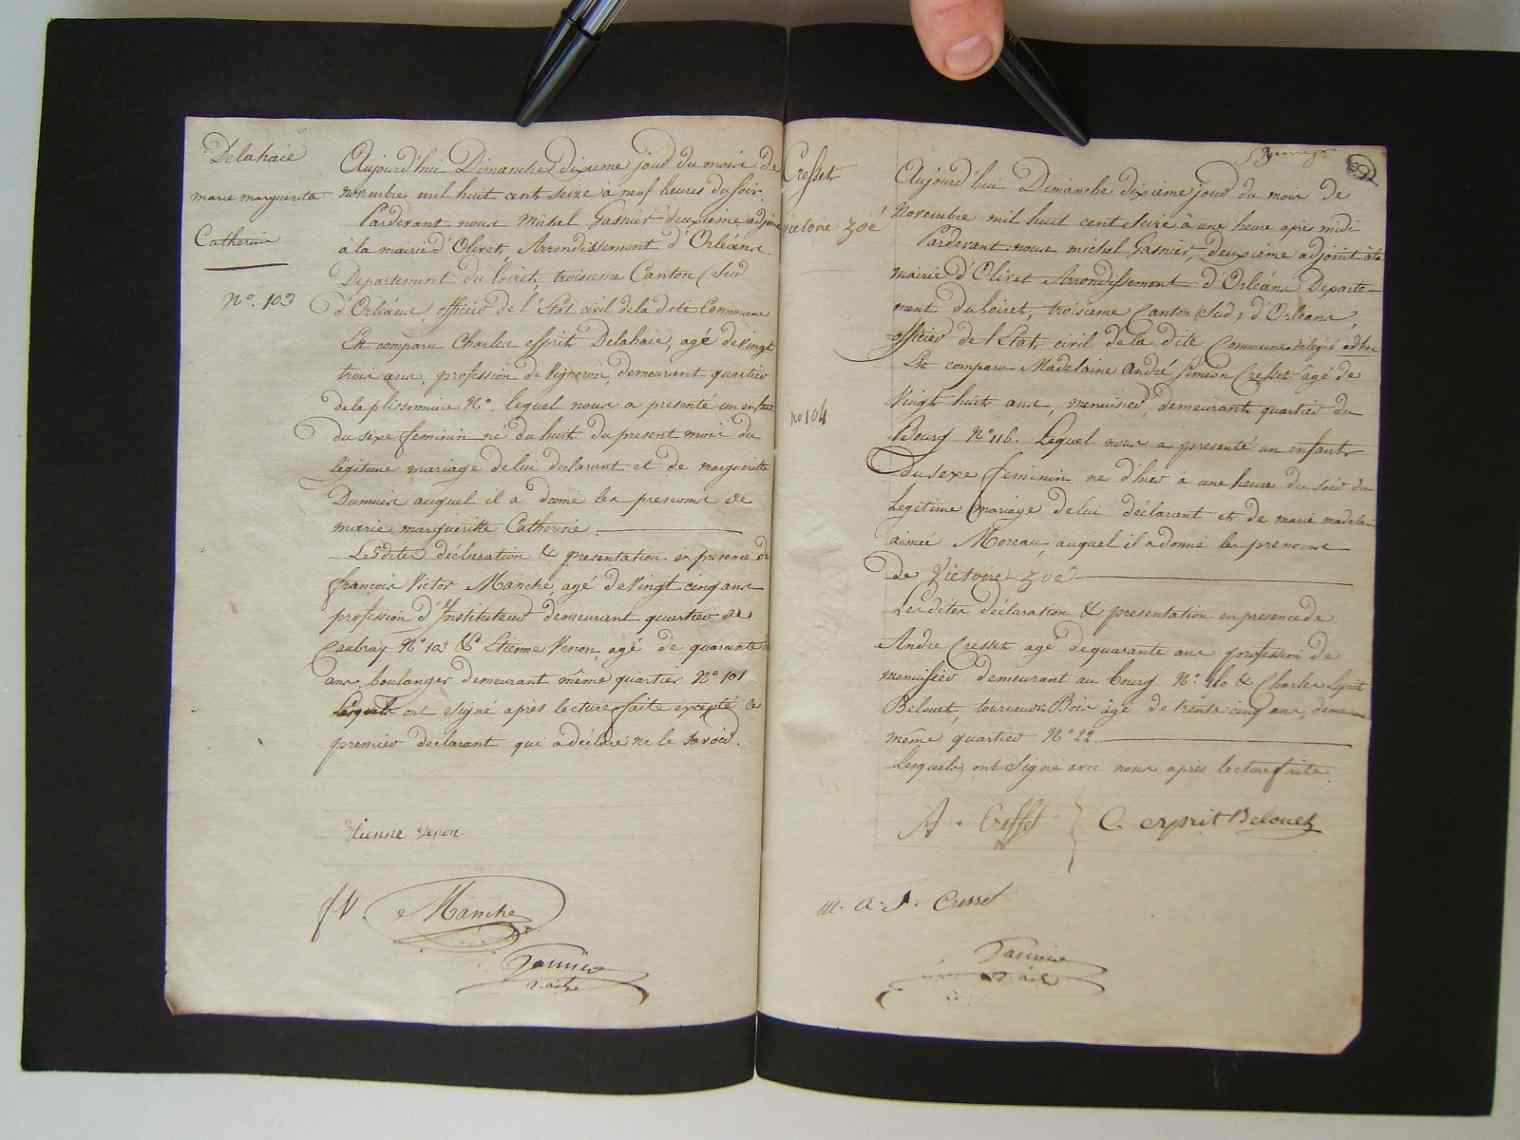 Delahaie
marie marguerite
Catherine
N°. 103
Aujourd'hui Dimanche dixieme jour du mois de
novembre mil huit cent seize à neuf heures du soir.
Pardevant nous Michel Gasnier deuxieme adjoint
à la mairie d'Olivet, Arrondissement d'Orléans
Département du Loiret, troisieme Canton (Sud
d'Orléans, officier de l'Etat civil de la dite Commune
Est comparu Charles esprit Delahaie, agé de vingt
trois ans, profession de Vigneron, demeurant quartier
de la plissonniere N°. lequel nous a presenté un enfant
du sexe feminin né du huit du present mois du
légitime mariage de lui declarant et de marguerite
auquel il a donné les prenoms de
marie margueritte Catherine
Lesdites déclaration & presentation en presence de
françois Victor Manche, agé de vingt cinq ans
profession d'Instituteur demeurant quartier de
N° 103 & Etienne Venon, agé de quarante
ans, boulanger demeurant même quartier N° 101
Lesquels ont signé après lecture faite excepté le
premier declarant qui a déclaré ne le savoir.
Etienne venon
f. V. Manche
Gasnier
Cresset
victoire Zoé
no 104
Aujourd'hui Dimanche dixieme jour du mois de
Novembre mil huit cent Seize à une heure après midi
Pardevant nous michel Gasnier, deuxième adjoint à la
mairie d'Olivet Arrondissement d'Orléans Departe-
ment du Loiret, troisième Canton (Sud) d'Orleans,
officier de l'Etat civil de la dite Commune delegué ad hoc
Est comparu Madelaine André Simeon Cresset agé de
Vingt huit ans, menuisier, demeurant quartier du
Bourg N° 116. Lequel nous a presenté un enfant
du sexe feminin né d'hier à une heure du soir du
Legitime mariage de lui déclarant et de marie madelaine
aimée Moreau, auquel il a donné les prenoms
de Victoire Zoé
Lesdites déclaration & presentation en presence de
Andre Cresset agé de quarante ans profession de
menuisier demeurant au bourg N°. & Charles Esprit
Belouet, tourneur Bois agé de trente cinq ans, demeurant
même quartier N° 22.
Lesquels ont Signé avec nous après lecture faite.
A. Cresset C. esprit Belouet
m. a. S. Cresset
Gasnier